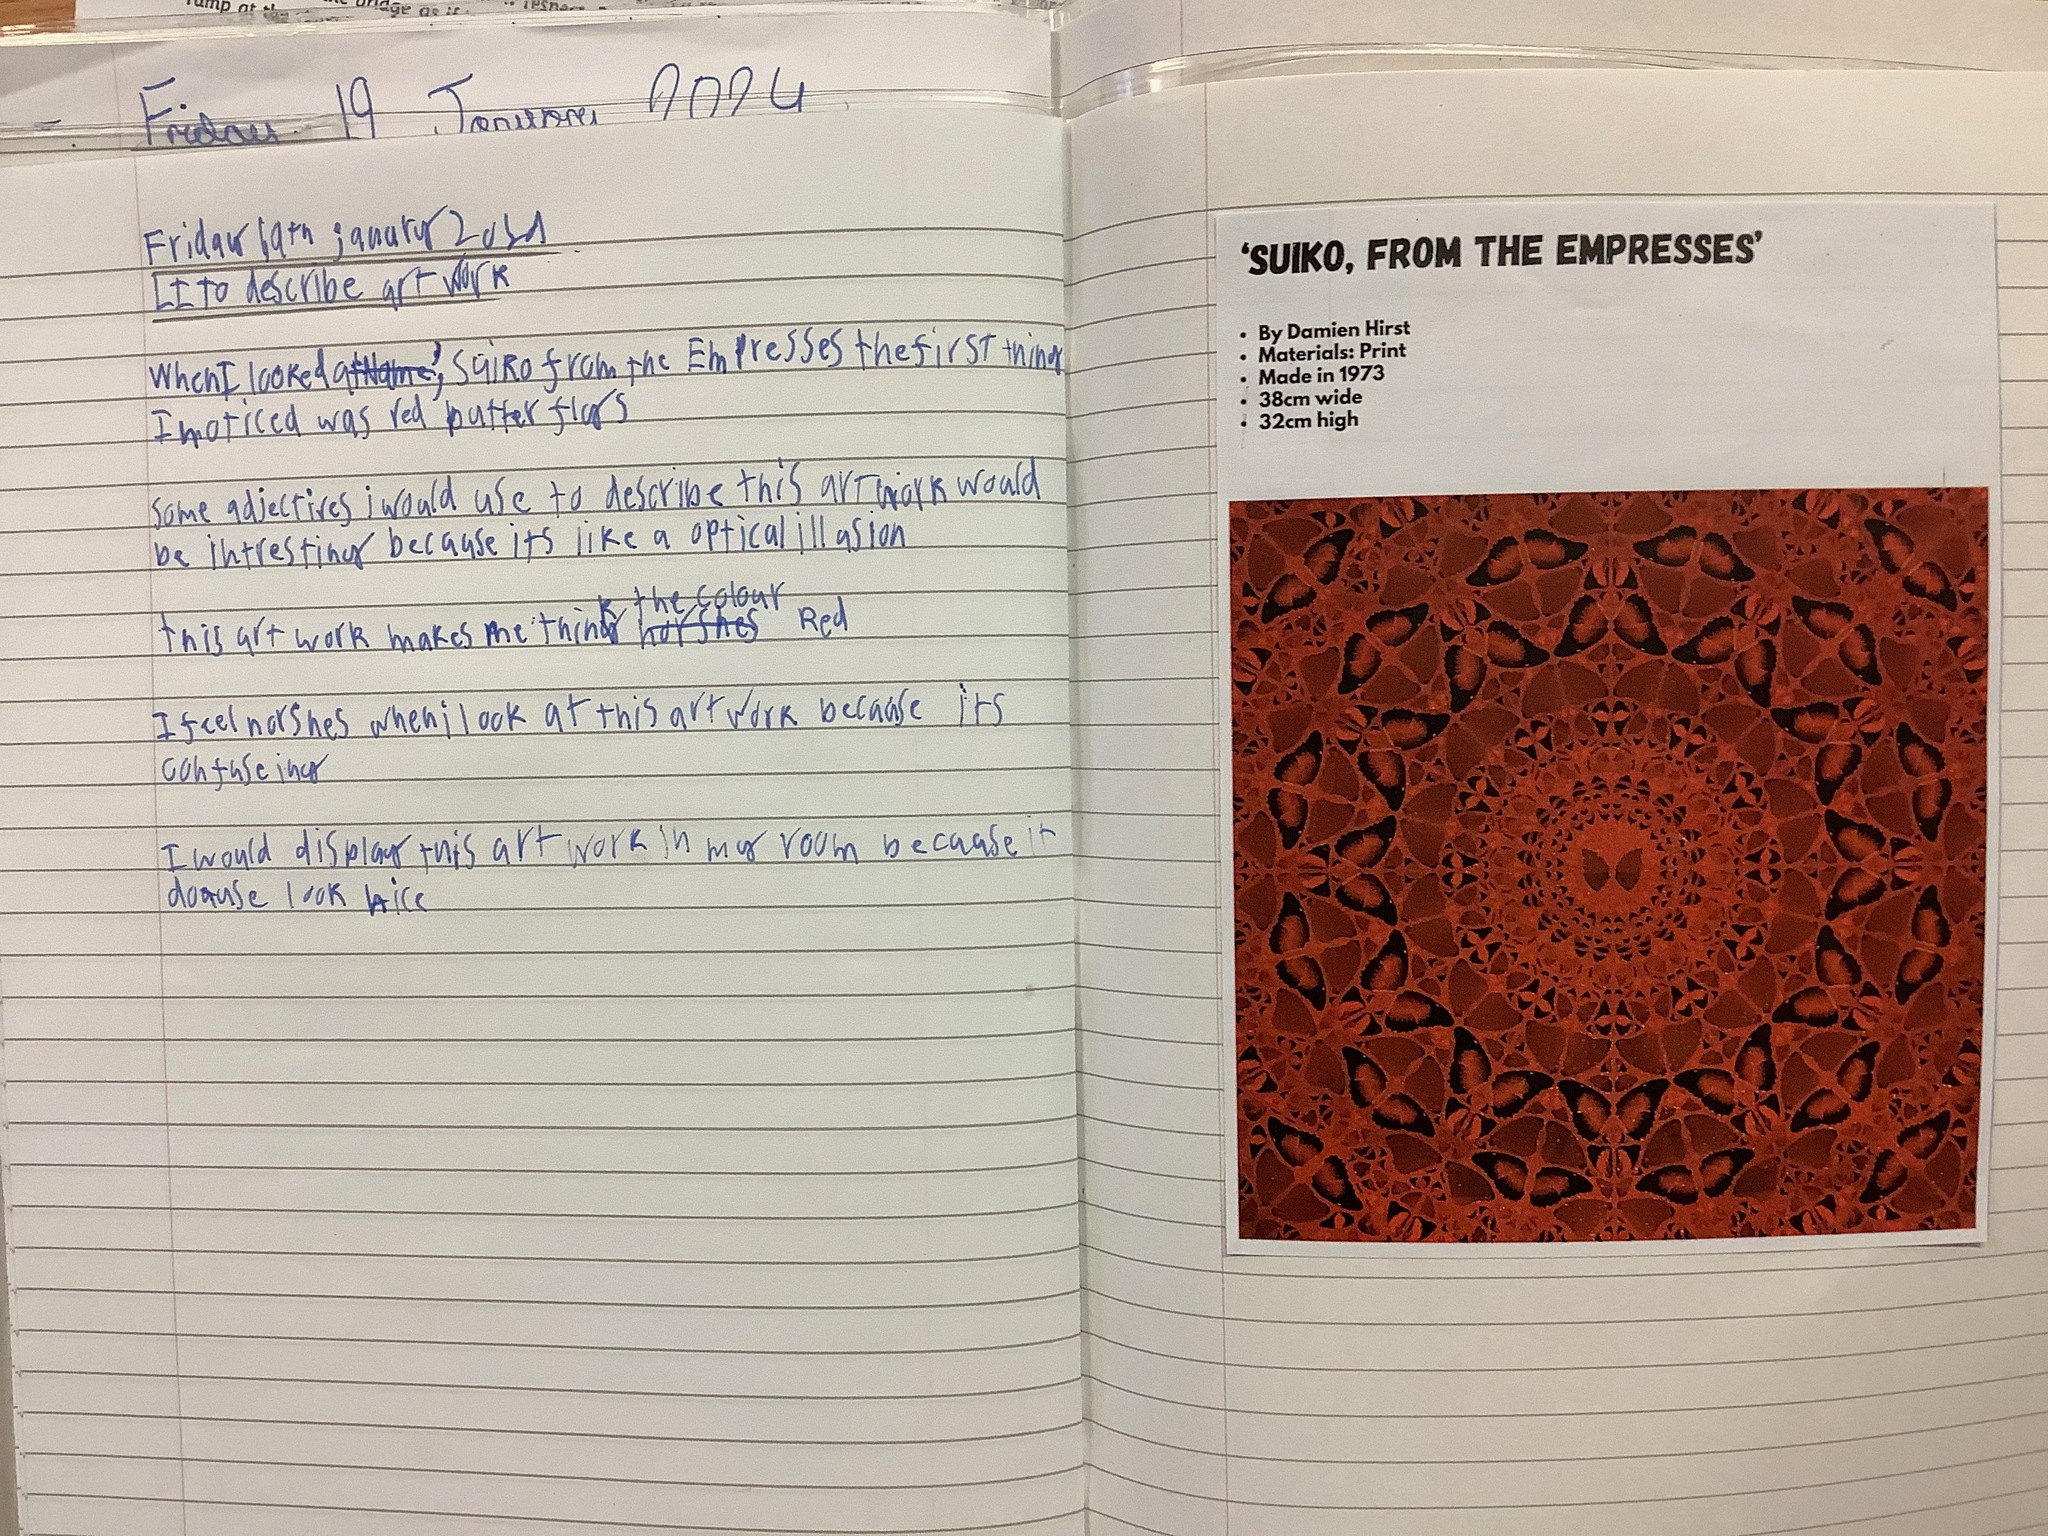 Friday 19 January 2024
Friday 19th january 2024
LI to describe art work
When I looked at Name ' Suiko from the Empresses the first thing
I noticed was red butterflys
some adjectives i would use to describe this art work would
be intresting because its like a optical illusion
the colour
this art work makes me think norshes Red
I feel norshes when i look at this art work because its
confuseing
I would display this art work in my room because it
look nice
'SUIKO, FROM THE EMPRESSES'
• By Damien Hirst
• Materials: Print
• Made in 1973
• 38cm wide
• 32cm high